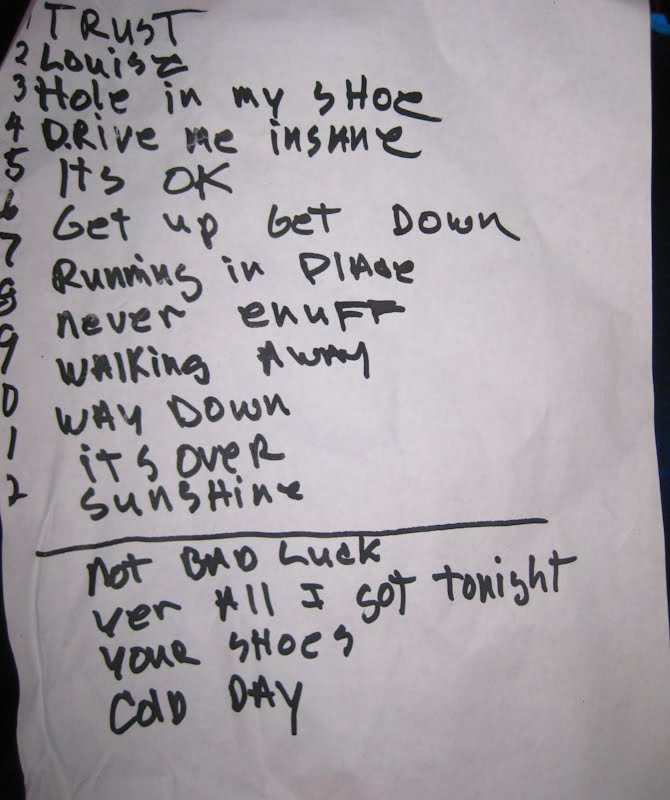 1 TRUST
2 Louise
3 Hole in my SHOe
4 DRive me insane
5 Its OK
6 Get up Get Down
7 Running in PlAce
8 never enuFF
9 WAlking AWAy
0 WAy DOWn
1 iTs OveR
2 SunsHine
not BAD Luck
ver All I got tonight
YOUR SHOes
COlD DAY